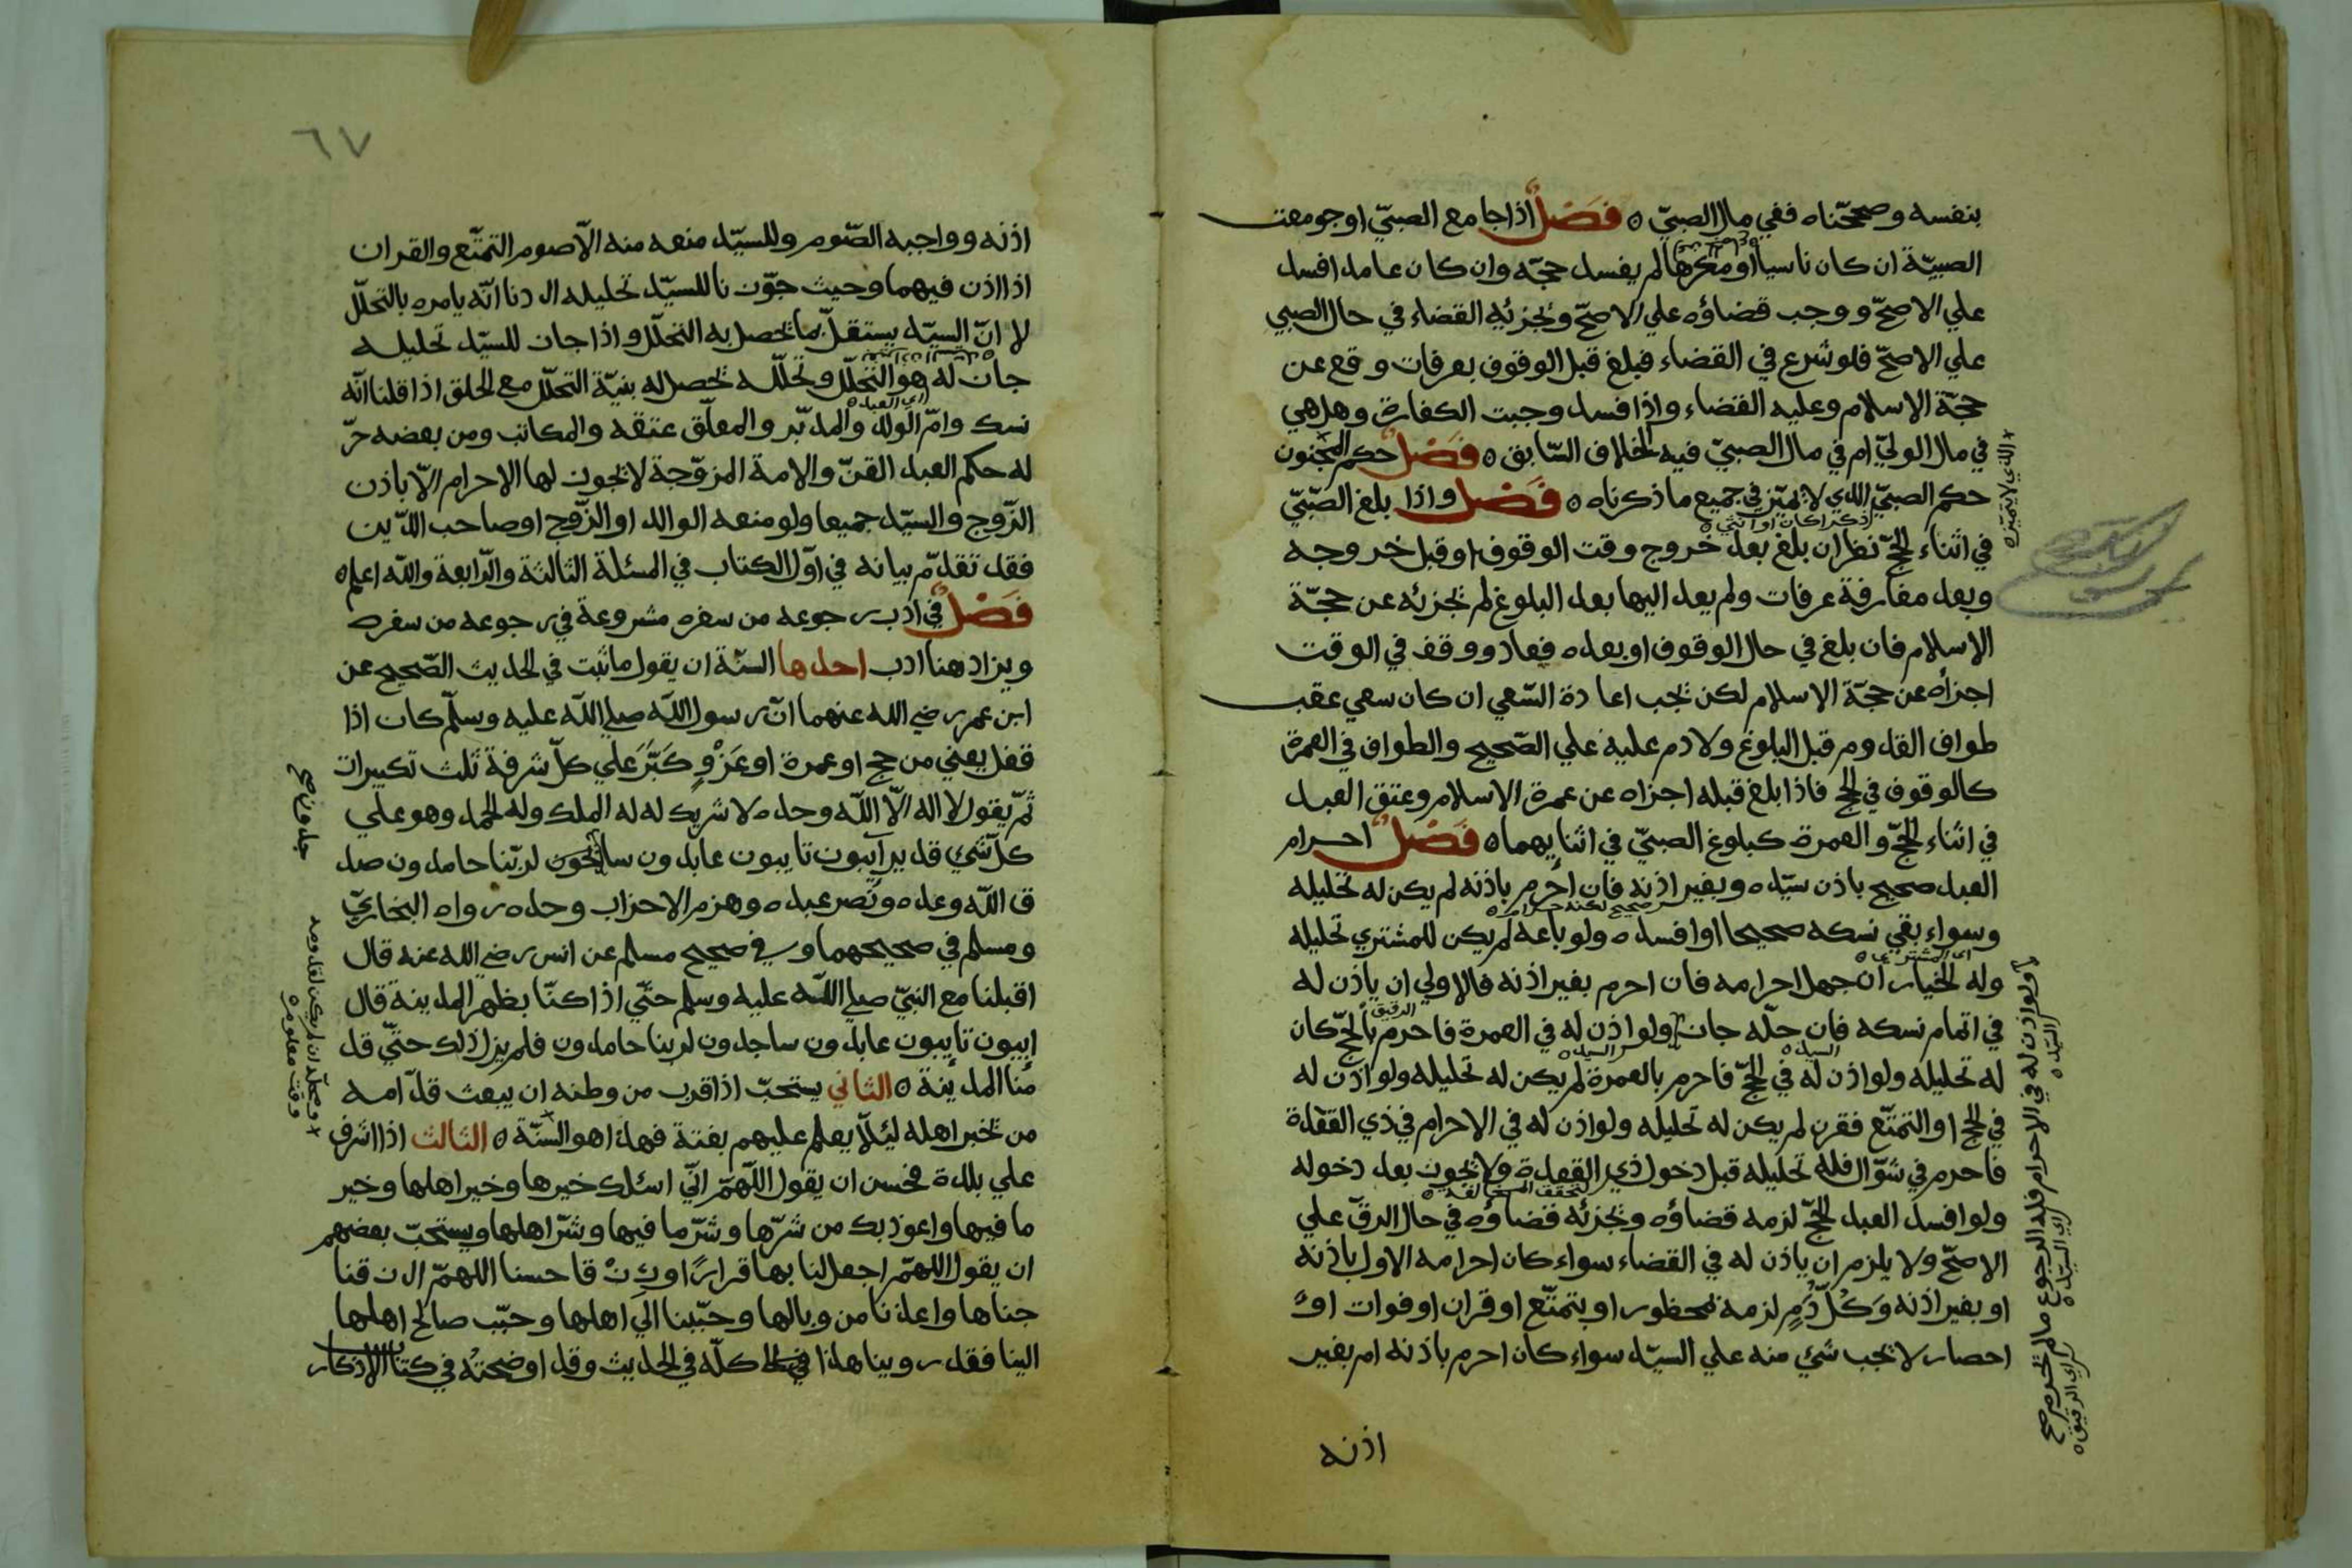 بنفسه وصححّناه ففي مال الصبيّ ه فَصْلٌ اذا جامع الصبيّ او جومعت
الصبيّة ان كان ناسيا او مكرها لم يفسد حجّه وان كان عامدا فسد
علي الاصحّ ووجب قضاؤه علي الاصحّ ويجزئه القضاء في حال الصبي
علي الاصحّ فلو شرع في القضاء فبلغ قبل الوقوف بعرفات وقع عن
حجّة الاسلام وعليه القضاء واذا فسد وجبت الكفارة وهل هي
في مال الوليّ ام في مال الصبيّ فيه الخلاف السّابق ه فَصْلٌ حكم المجنون
حكم الصبيّ الذي لا يميّز في جميع ما ذكرناه ه فَصْل واذا بلغ الصّبيّ
في اثناء الحجّ نظر ان بلغ بعد خروج وقت الوقوف او قبل خروجه
وبعد مفارقة عرفات ولم يعد اليها بعد البلوغ لم يجزئه عن حجّة
الاسلام فان بلغ في حال الوقوف او بعده فعاد ووقف في الوقت
اجزأه عن حجّة الاسلام لكن يجب اعادة السّعي ان كان سعي عقب
طواف القدوم قبل البلوغ ولا دم عليه علي الصّحيح والطواف في العمرة
كالوقوف في الحج فاذا بلغ قبله اجزاه عن عمرة الاسلام وعتق العبد
في اثناء الحجّ والعمرة كبلوغ الصبيّ في اثنايهما ه فَصْلٌ احرام
العبد صحيح باذن سيّده وبغير اذنه فان احرم باذنه لم يكن له تحليله
وسواء بقي نسكه صحيحا او افسده ولو باعه لم يكن للمشتري تحليله
وله الخيار ان جهل احرامه فان احرم بغير اذنه فالاولي ان ياذن له
في اتمام نسكه فان حلّه جاز ولو اذن له في العمرة فاحرم بالحجّ كان
له تحليله ولو اذن له في الحجّ فاحرم بالعمرة لم يكن له تحليله ولو اذن له
في الحج او التمتّع فقرن لم يكن له تحليله ولو اذن له في الاحرام في ذي القعدة
فاحرم في شوّال فله تحليله قبل دخول ذي القعدة ولا يجوز بعد دخوله
ولو افسد العبد الحجّ لزمه قضاؤه ويجزئه قضاؤه في حال الرقّ علي
الاصحّ ولا يلزم ان ياذن له في القضاء سواء كان احرامه الاول باذنه
او بغير اذنه وَكُلُّ دَمٍ لزمه لمحظور او بتمتّع او قران او فوات او
احصار لا يجب شئ منه علي السيّد سواء كان احرم باذنه ام بغير
اذنه
الذي لا يتميّز ه
اذكرا كان او انثي ه
صحيح لكنه حرام ه
اي المشتري ه
الرقيق
السيد ه
السيد ه
ولو اذن له في الاحرام فله الرجوع ما لم يحرم صح
السيّد ه
اي السيّد ه
اي الرقيق ه
٦٧
اذنه وواجبه الصّوم وللسيّد منعه منه الّا صوم التمتّع والقران
اذا اذن فيهما وحيث جوّزنا للسيّد تحليله اردنا انّه يامره بالتحلّل
لا انّ السيّد يستقلّ بما يحصل به التحلّل واذا جاز للسيّد تحليله
جاز له هو التحلّل وتحلّله يحصل له بنيّة التحلّل مع الحلق اذا قلنا انّه
نسك وامّ الولد والمدبّر والمعلّق عتقه والمكاتب ومن بعضه حرّ
له حكم العبد القنّ والامة المزوّجة لا يجوز لها الاحرام الّا باذن
الزّوج والسيّد جميعا ولو منعه الوالد او الزّوج او صاحب الدّين
فقد تقدّم بيانه في اوّل الكتاب في المسئلة الثالثة والرّابعة واللّه اعلم ه
فَصْلٌ في ادب رجوعه من سفره مشروعة في رجوعه من سفره
ويزاد هنا ادب احدها السنّة ان يقول ما ثبت في الحديث الصّحيح عن
ابن عمر رضي الله عنهما انّ رسول اللّه صلي اللّه عليه وسلّم كان اذا
قفل يعني من حج او عمرة او غَزْوٍ كَبَّرَ علي كلّ شرفة ثلث تكبيرات
ثمّ يقول لا اله الّا اللّه وحده لا شريك له له الملك وله الحمد وهو علي
كلّ شئ قدير آيبون تايبون عابدون سائحون لربّنا حامدون صد
ق اللّه وعده ونَصر عبده وهزم الاحزاب وحده رواه البخاريّ
ومسلم في صحيحهما وفي صحيح مسلم عن انس رضي الله عنه قال
اقبلنا مع النبيّ صلي اللّه عليه وسلم حتّي اذا كنّا بظهر المدينة قال
ايبون تايبون عابدون ساجدون لربنا حامدون فلم يزل ذلك حتّي قد
منا المدينة ه الثاني يستحبّ اذا قرب من وطنه ان يبعث قدّامه
من يخبر اهله ليئلّا يعلم عليهم بغتة فهذا هو السّنّة ه الثالث اذا اشرف
علي بلدة فحسن ان يقول اللّهمّ انّي اسئلك خيرها وخير اهلها وخير
ما فيها واعوذ بك من شرّها وشرّ ما فيها وشرّ اهلها ويستحبّ بعضهم
ان يقول اللهمّ اجعل لنا بها قراراً ورِزْقا حسنا اللهمّ ارزقنا
جناها واعذنا من وبالها وحبّبنا الي اهلها وحبّب صالح اهلها
الينا فقد روينا هذا كلّه في الحديث وقد اوضحته في كتاب الاذكار
اي العبد ه
جدون صح
ومحلّه ان لم يكن لقدومه
وقت معلوم ه